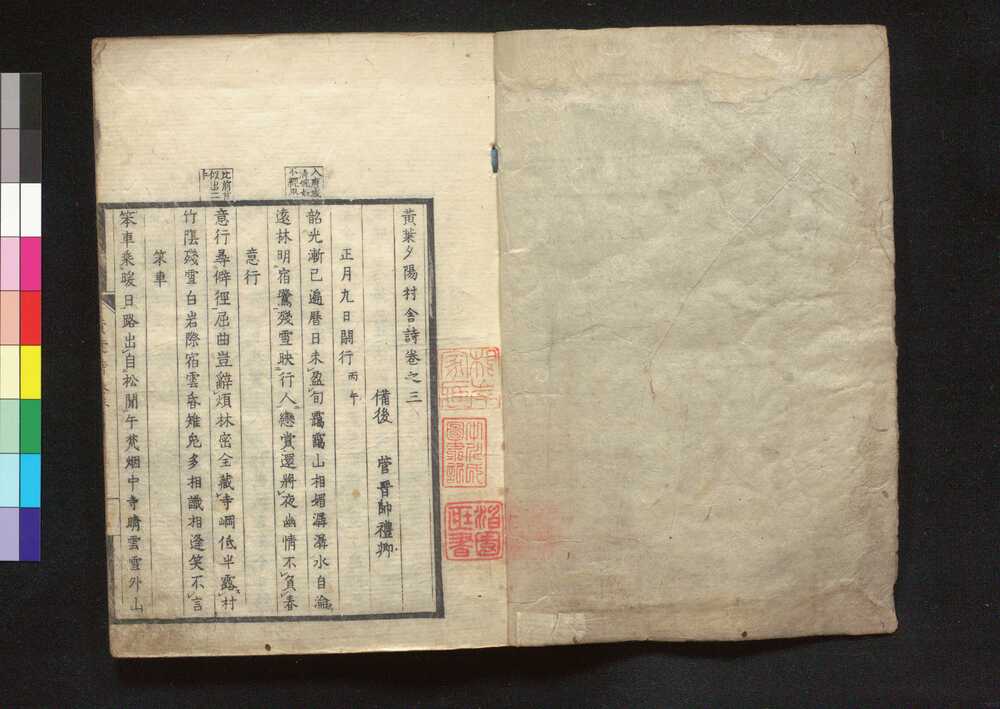 黄葉夕陽村舎詩卷之三
備後 菅晋帥禮卿
正月九日閒行 丙午
韶光漸已遍暦日未盈旬靄靄山相媚潺潺水自淪
遠林明宿鷺殘雪映行人戀賞還將夜幽情不負春
意行
意行尋僻徑屈曲豈辭煩林密全藏寺岡低半露村
竹隂殘雪白岩際宿雲昏雉兎多相識相逢笑不言
笨車
笨車乘暖日路出自松閒午梵烟中寺晴雲雪外山